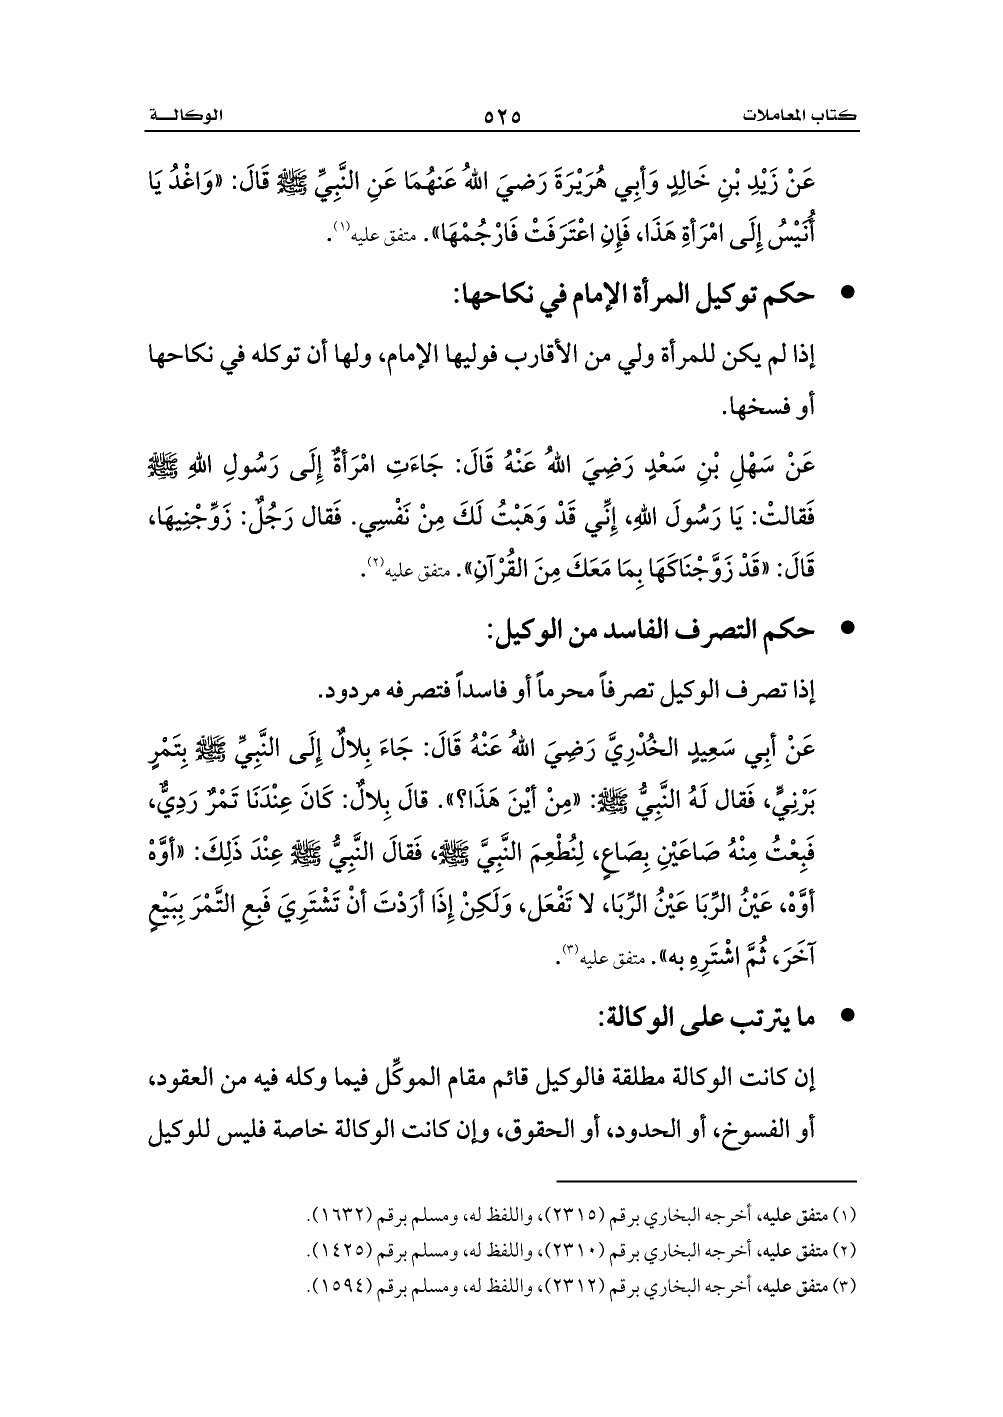 كتاب المعاملات ٥٢٥ الوكالـــة
عَنْ زَيْدِ بْنِ خَالِدٍ وَأبِي هُرَيْرَةَ رَضيَ اللهُ عَنهُمَا عَنِ النَّبِيِّ ﷺ قَالَ: «وَاغْدُ يَا
أُنَيْسُ إِلَى امْرَأةِ هَذَا، فَإِنِ اعْتَرَفَتْ فَارْجُمْهَا». متفق عليه(١).
● حكم توكيل المرأة الإمام في نكاحها:
إذا لم يكن للمرأة ولي من الأقارب فوليها الإمام، ولها أن توكله في نكاحها
أو فسخها.
عَنْ سَهْلِ بْنِ سَعْدٍ رَضِيَ اللهُ عَنْهُ قَالَ: جَاءَتِ امْرَأةٌ إِلَى رَسُولِ اللهِ ﷺ
فَقالتْ: يَا رَسُولَ اللهِ، إِنِّي قَدْ وَهَبْتُ لَكَ مِنْ نَفْسِي. فَقال رَجُلٌ: زَوِّجْنِيهَا،
قَالَ: «قَدْ زَوَّجْنَاكَهَا بِمَا مَعَكَ مِنَ القُرْآنِ». متفق عليه(٢).
● حكم التصرف الفاسد من الوكيل:
إذا تصرف الوكيل تصرفاً محرماً أو فاسداً فتصرفه مردود.
عَنْ أبِي سَعِيدٍ الخُدْرِيَّ رَضِيَ اللهُ عَنْهُ قَالَ: جَاءَ بِلالٌ إِلَى النَّبِيِّ ﷺ بِتَمْرٍ
بَرْنِيٍّ، فَقال لَهُ النَّبِيُّ ﷺ: «مِنْ أيْنَ هَذَا؟». قالَ بِلالٌ: كَانَ عِنْدَنَا تَمْرٌ رَدِيٌّ،
فَبِعْتُ مِنْهُ صَاعَيْنِ بِصَاعٍ، لِنُطْعِمَ النَّبِيَّ ﷺ، فَقالَ النَّبِيُّ ﷺ عِنْدَ ذَلِكَ: «أوَّهْ
أوَّهْ، عَيْنُ الرِّبَا عَيْنُ الرِّبَا، لا تَفْعَل، وَلَكِنْ إِذَا أرَدْتَ أنْ تَشْتَرِيَ فَبِعِ التَّمْرَ بِبَيْعٍ
آخَرَ، ثُمَّ اشْتَرِهِ به». متفق عليه(٣).
● ما يترتب على الوكالة:
إن كانت الوكالة مطلقة فالوكيل قائم مقام الموكِّل فيما وكله فيه من العقود،
أو الفسوخ، أو الحدود، أو الحقوق، وإن كانت الوكالة خاصة فليس للوكيل
(١) متفق عليه، أخرجه البخاري برقم (٢٣١٥)، واللفظ له، ومسلم برقم (١٦٣٢).
(٢) متفق عليه، أخرجه البخاري برقم (٢٣١٠)، واللفظ له، ومسلم برقم (١٤٢٥).
(٣) متفق عليه، أخرجه البخاري برقم (٢٣١٢)، واللفظ له، ومسلم برقم (١٥٩٤).